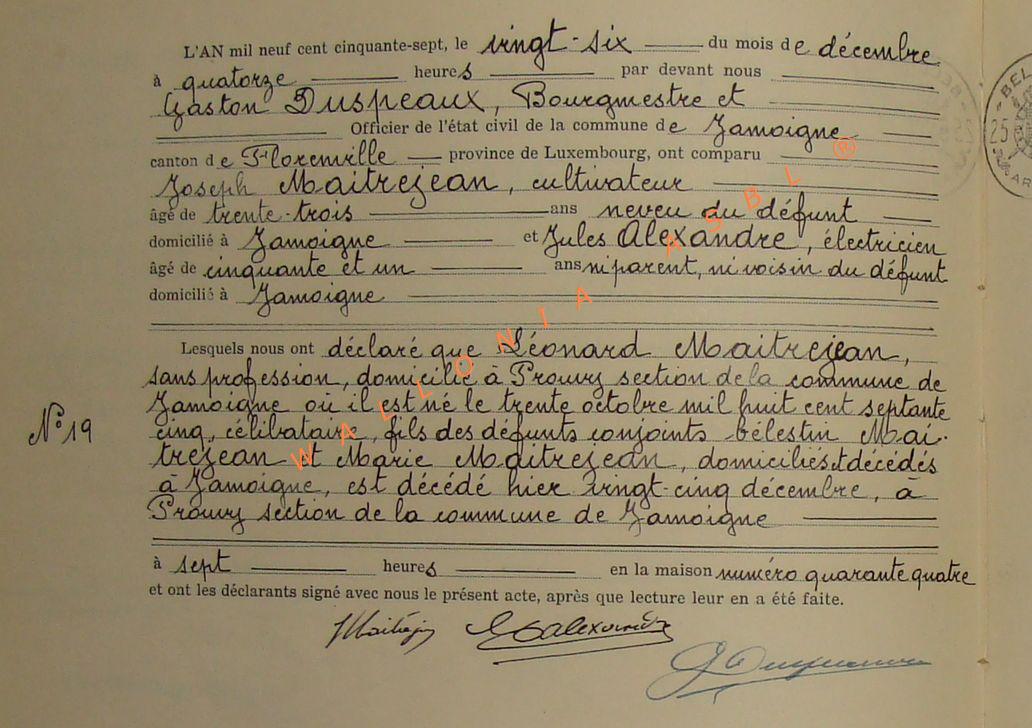 L'AN mil neuf cent cinquante-sept, le vingt-six du mois de décembre
à quatorze heures par devant nous
Gaston Duspeaux, Bourgmestre et
Officier de l'état civil de la commune de Jamoigne
canton de Florenville province de Luxembourg, ont comparu
Joseph Maitrejean, cultivateur
âgé de trente-trois ans neveu du défunt
domicilié à Jamoigne et Jules Alexandre, électricien
âgé de cinquante et un ans ni parent, ni voisin du défunt
domicilié à Jamoigne
Lesquels nous ont déclaré que Léonard Maitrejean,
sans profession, domicilié à Prouvy section de la commune de
Jamoigne où il est né le trente octobre mil huit cent septante
N° 19
cinq, célibataire, fils des défunts conjoints Célestin Mai-
trejean et Marie Maitrejean, domiciliés et décédés
à Jamoigne, est décédé hier vingt-cinq décembre, à
Prouvy section de la commune de Jamoigne
à sept heures en la maison numéro quarante quatre
et ont les déclarants signé avec nous le présent acte, après que lecture leur en a été faite.
WALLONIA ASBL ®
BEL
25